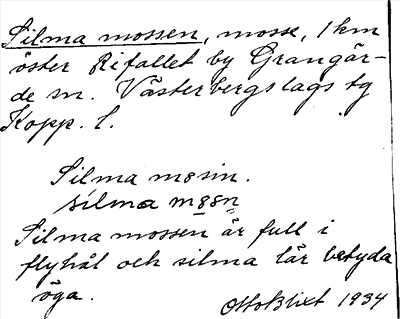 Silma mossen, mosse, 1 km
öster Rifallet by Grangär-
de sn. Västerbergslags tg
Kopp. l.
Silma mosin.
silma
Silma mossen är full i
flyhål och silma lär betyda
öga.
Otto Blixt 1934